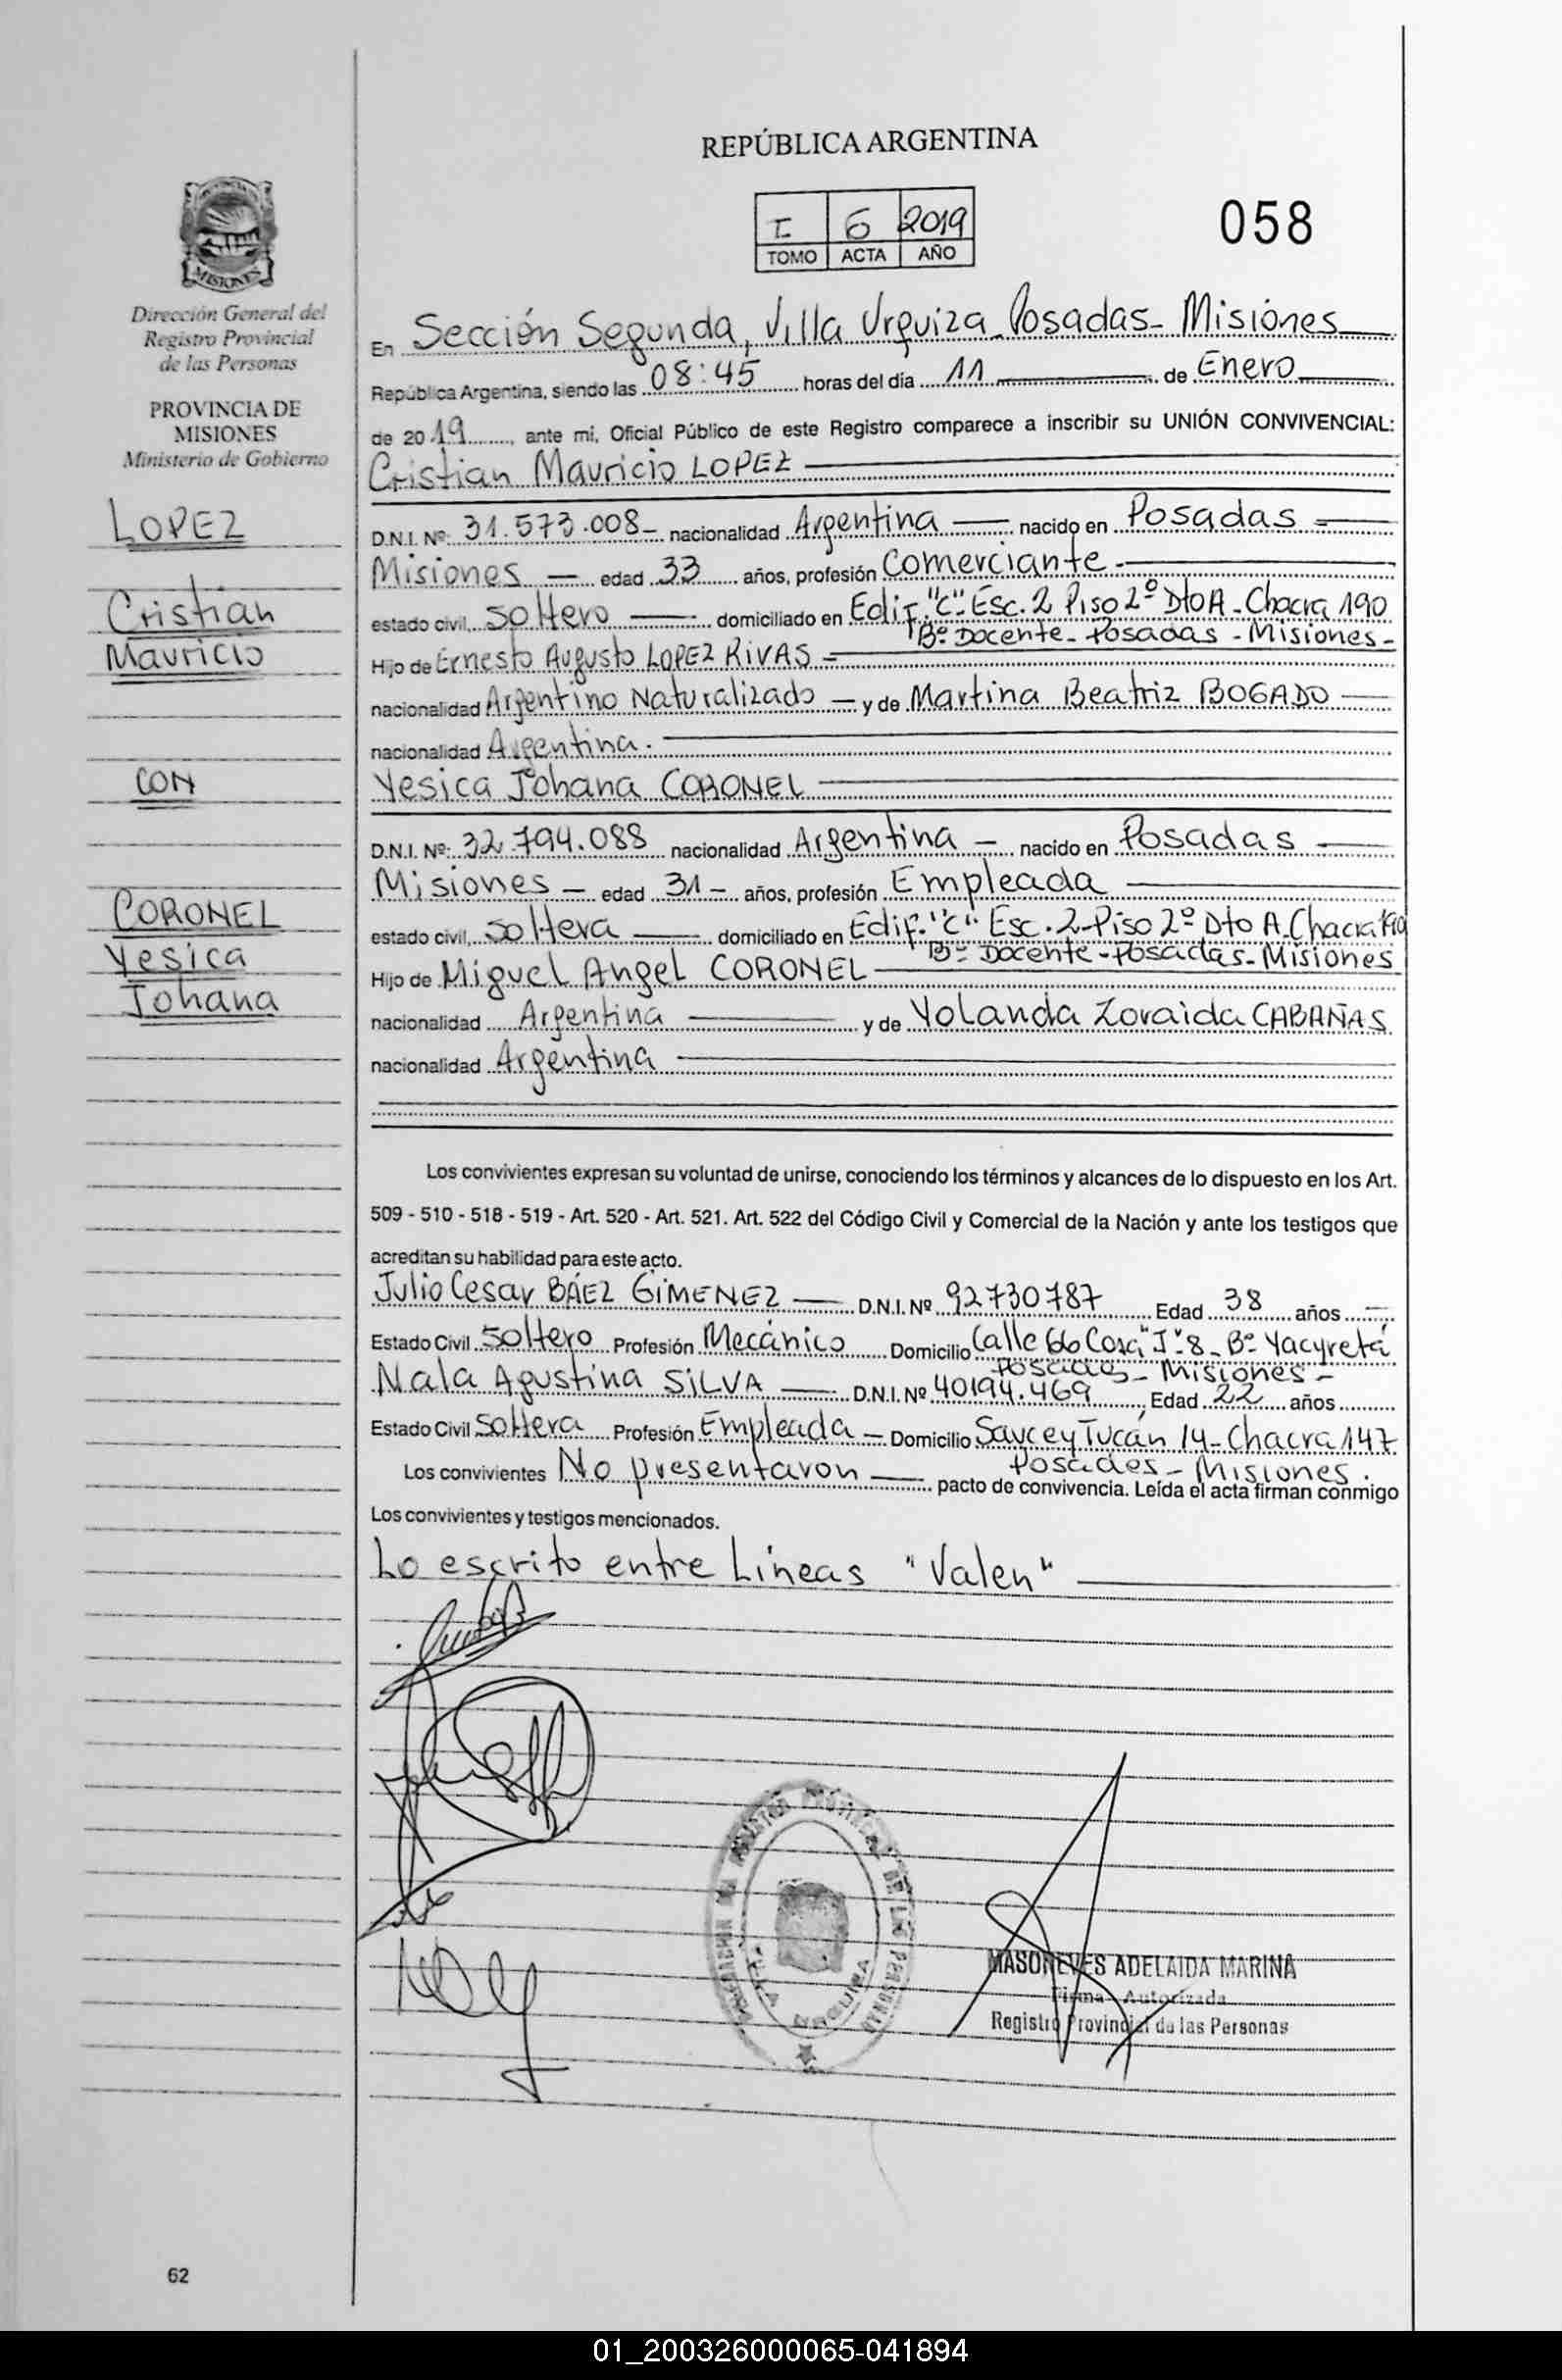 REPÚBLICA ARGENTINA
I 6 2019
TOMO ACTA AÑO
058
MISIONES
Dirección General del
Registro Provincial
de las Personas
PROVINCIA DE
MISIONES
Ministerio de Gobierno
LOPEZ
Cristian
Mauricio
CON
CORONEL
Yesica
Johana
En Sección Segunda, Villa Urquiza - Posadas - Misiones
República Argentina, siendo las 08:45 horas del día 11 de Enero
de 2019, ante mi, Oficial Público de este Registro comparece a inscribir su UNIÓN CONVIVENCIAL:
Cristian Mauricio LOPEZ
D.N.I. Nº 31.573.008 - nacionalidad Argentina nacido en Posadas
Misiones edad 33 años, profesión Comerciante
estado civil soltero domiciliado en Edif. "C" Esc. 2 Piso 2º Dto A - Chacra 190
Bº Docente - Posadas - Misiones -
Hijo de Ernesto Augusto LOPEZ RIVAS
nacionalidad Argentino Naturalizado y de Martina Beatriz BOGADO
nacionalidad Argentina.
Yesica Johana CORONEL
D.N.I. Nº 32.794.088 nacionalidad Argentina nacido en Posadas
Misiones edad 31 - años, profesión Empleada
estado civil soltera domiciliado en Edif. "C" Esc. 2 - Piso 2º Dto A. Chacra 190
Bº Docente - Posadas - Misiones
Hijo de Miguel Angel CORONEL
nacionalidad Argentina y de Yolanda Zoraida CABAÑAS
nacionalidad Argentina
Los convivientes expresan su voluntad de unirse, conociendo los términos y alcances de lo dispuesto en los Art.
509 - 510 - 518 - 519 - Art. 520 - Art. 521. Art. 522 del Código Civil y Comercial de la Nación y ante los testigos que
acreditan su habilidad para este acto.
Julio Cesar BÁEZ GIMENEZ D.N.I. Nº 92730787 Edad 38 años
Estado Civil Soltero Profesión Mecánico Domicilio Calle 66 Casa "J" 8 - Bº Yacyretá
Posadas - Misiones -
Nala Agustina SILVA D.N.I. Nº 40194.469 Edad 22 años
Estado Civil Soltera Profesión Empleada Domicilio Sauce y Tucán 14 - Chacra 147
Posadas - Misiones.
Los convivientes No presentaron pacto de convivencia. Leída el acta firman conmigo
Los convivientes y testigos mencionados.
Lo escrito entre Líneas "Valen"
REGISTRO PROVINCIAL DE LAS PERSONAS
VILLA URQUIZA
MASONEVES ADELAIDA MARINA
Firma Autorizada
Registro Provincial de las Personas
62
01_200326000065-041894